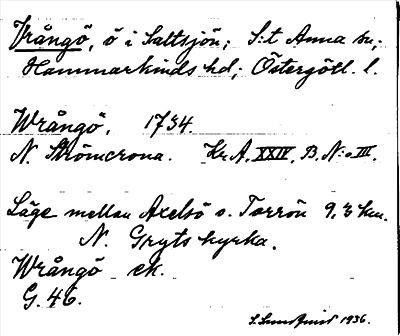 Vrångö, ö i Saltsjön; S:t Anna sn;
Hammarkinds hd; Östergötl. l.
Wrångö, 1734.
N. Strömcrona. Kr.A, XXIV, B. N:o III.
Läge mellan Axelsö o. Torrön 9,3 km.
N. Gryts kyrka.
Wrångö ek.
G. 46.
S. Lundqvist 1936.